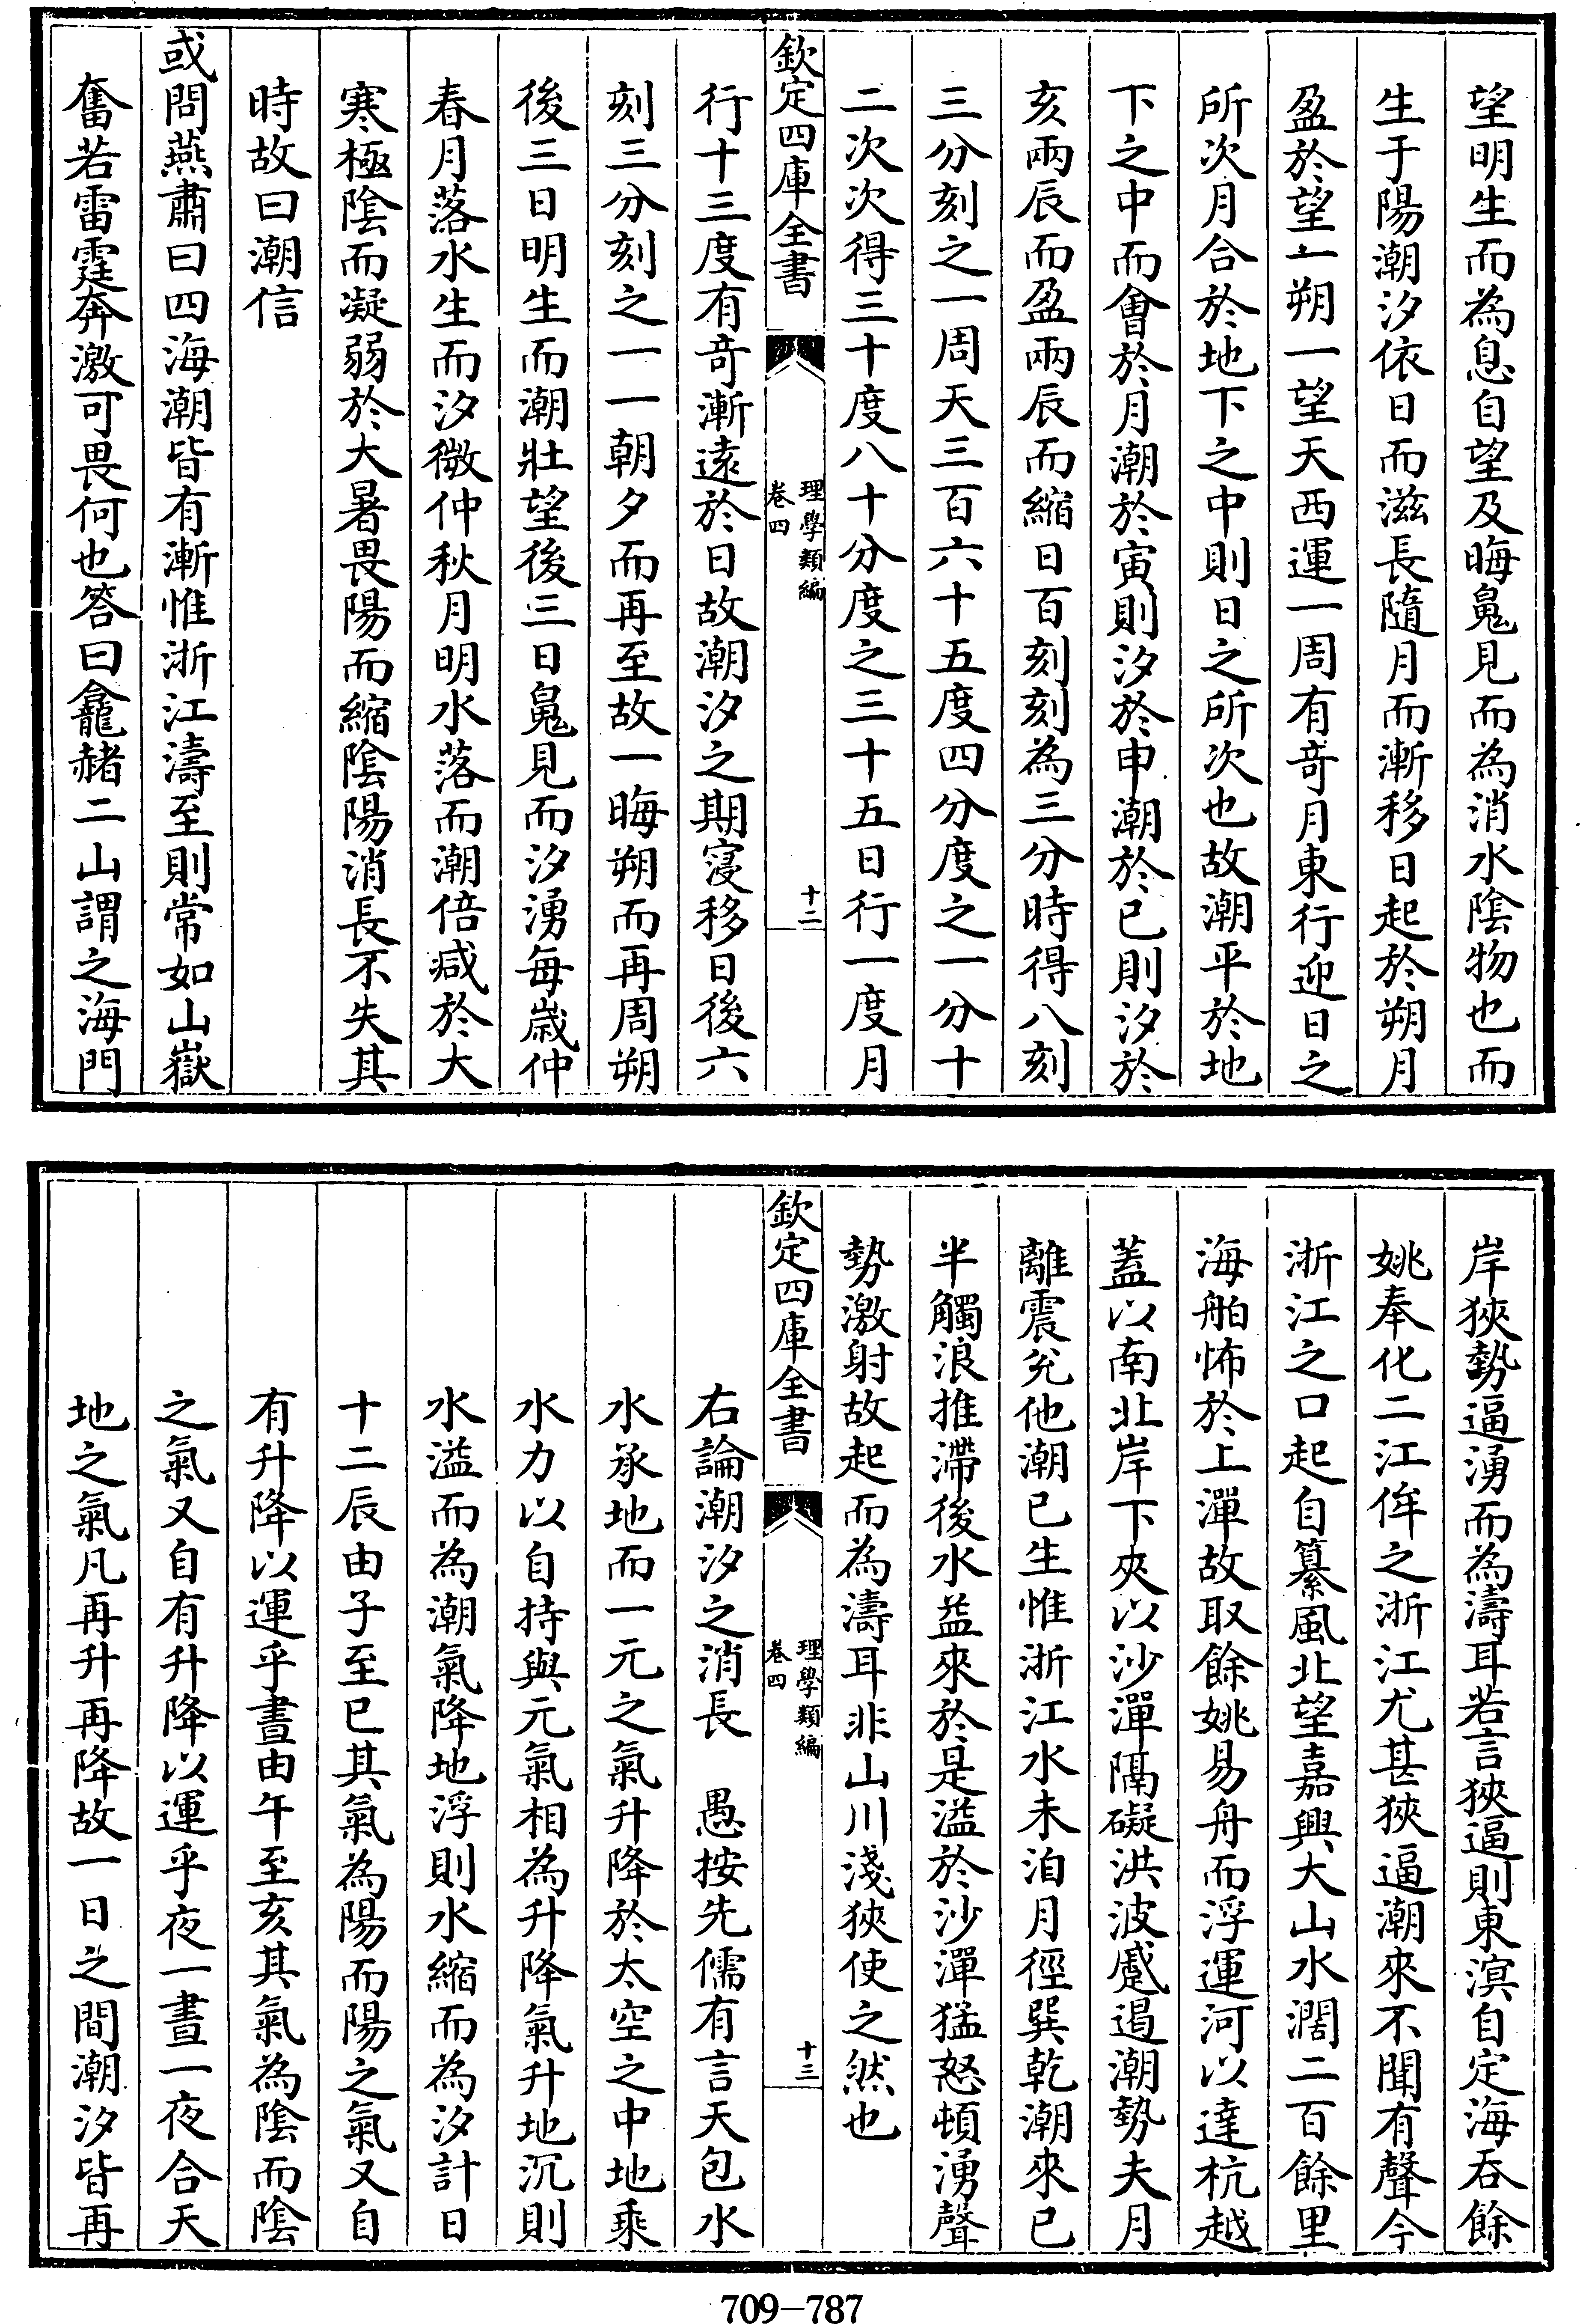 望明生而為息自望及晦鬼見而為消水陰物也而
生于陽潮汐依日而滋長隨月而漸移日起於朔月
盈於望一朔一望天西運一周有竒月東行迎日之
所次月合於地下之中則日之所次也故潮平於地
下之中而會於月潮於寅則汐於申潮於巳則汐於
亥兩辰而盈兩辰而縮日百刻刻為三分時得八刻
三分刻之一周天三百六十五度四分度之一分十
二次次得三十度八十分度之三十五日行一度月
欽定四庫全書
理學類編
卷四
十二
行十三度有竒漸遠於日故潮汐之期寖移日後六
刻三分刻之一一朝夕而再至故一晦朔而再周朔
後三日明生而潮壯望後三日鬼見而汐湧每歲仲
春月落水生而汐微仲秋月明水落而潮倍減於大
寒極陰而凝弱於大暑畏陽而縮陰陽消長不失其
時故曰潮信
或問燕肅曰四海潮皆有漸惟浙江濤至則常如山嶽
奮若雷霆奔激可畏何也答曰龕赭二山謂之海門
岸狹勢逼湧而為濤耳若言狹逼則東溟自定海吞餘
姚奉化二江侔之浙江尤甚狹逼潮來不聞有聲今
浙江之口起自纂風北望嘉興大山水濶二百餘里
海舶怖於上潬故取餘姚易舟而浮運河以達杭越
蓋以南北岸下夾以沙潬隔礙洪波蹙遏潮勢夫月
離震兊他潮已生惟浙江水未洎月徑巽乾潮來已
半觸浪推滯後水益來於是溢於沙潬猛怒頓湧聲
勢激射故起而為濤耳非山川淺狹使之然也
欽定四庫全書
理學類編
卷四
十三
右論潮汐之消長 愚按先儒有言天包水
水承地而一元之氣升降於太空之中地乘
水力以自持與元氣相為升降氣升地沉則
水溢而為潮氣降地浮則水縮而為汐計日
十二辰由子至巳其氣為陽而陽之氣又自
有升降以運乎晝由午至亥其氣為陰而陰
之氣又自有升降以運乎夜一晝一夜合天
地之氣凡再升再降故一日之間潮汐皆再
709-787